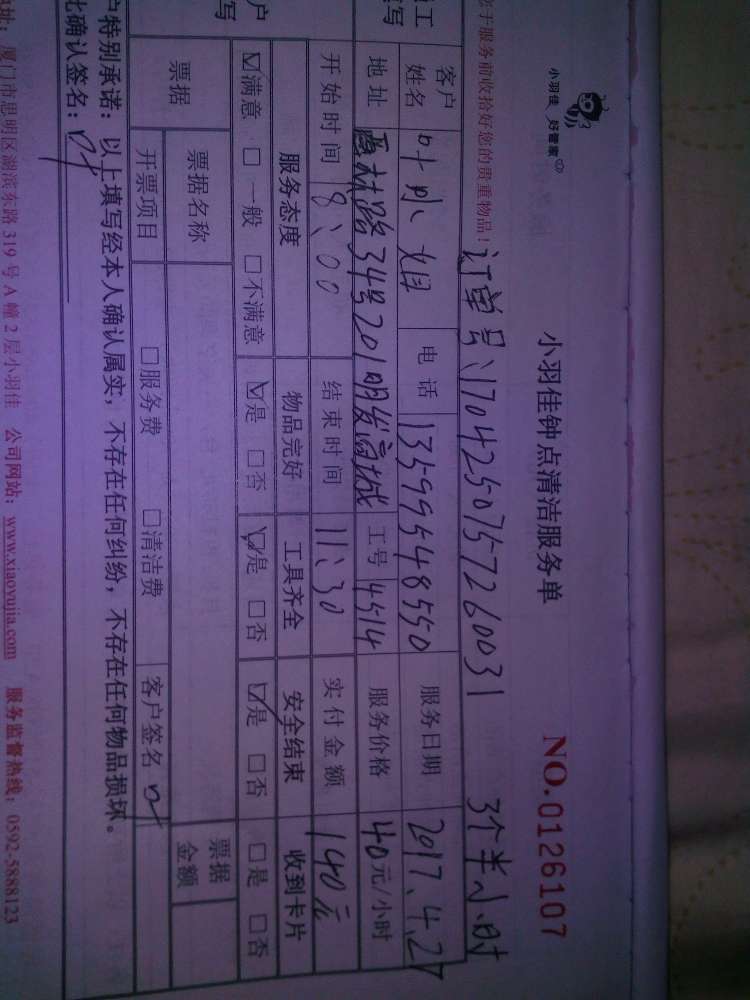 小羽佳 好管家
小羽佳钟点清洁服务单
NO.0126107
订单号:1704250757260031 3个半小时
您于服务前收拾好您的贵重物品!
客户姓名 叶 电话 13599548550 服务日期 2017.4.27
地址 34号201明发商城 工号 4514 服务价格 40元/小时
开始时间 8:00 结束时间 11:30 实付金额 140元
服务态度 物品完好 工具齐全 安全结束 收到卡片
☑满意 □一般 □不满意 ☑是 □否 ☑是 □否 ☑是 □否 □是 □否
票据 票据名称 票据金额
开票项目 □服务费 □清洁费 客户签名
户特别承诺:以上填写经本人确认属实,不存在任何纠纷,不存在任何物品损坏。
此确认签名:
地址:厦门市思明区湖滨东路319号A幢2层小羽佳 公司网站:www.xiaoyujia.com 服务监督热线:0592-5888123